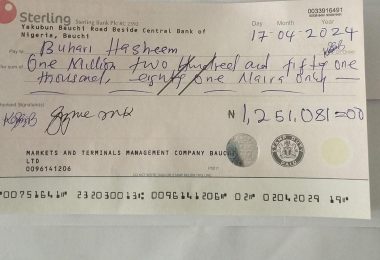 0033916491
Sterling Sterling Bank Plc RC 2392
Yakubun Bauchi Road Beside Central Bank of
Nigeria, Bauchi
Day Month Year
17-04-2024
Pay
Buhari Hasheem
sum of
One Million two hundred and fifty one
thousand, eighty one Naira only
Signature(s)
₦ 1,251,081=00
MARKETS AND TERMINALS MANAGEMENT COMPANY BAUC
LTD
0096141206